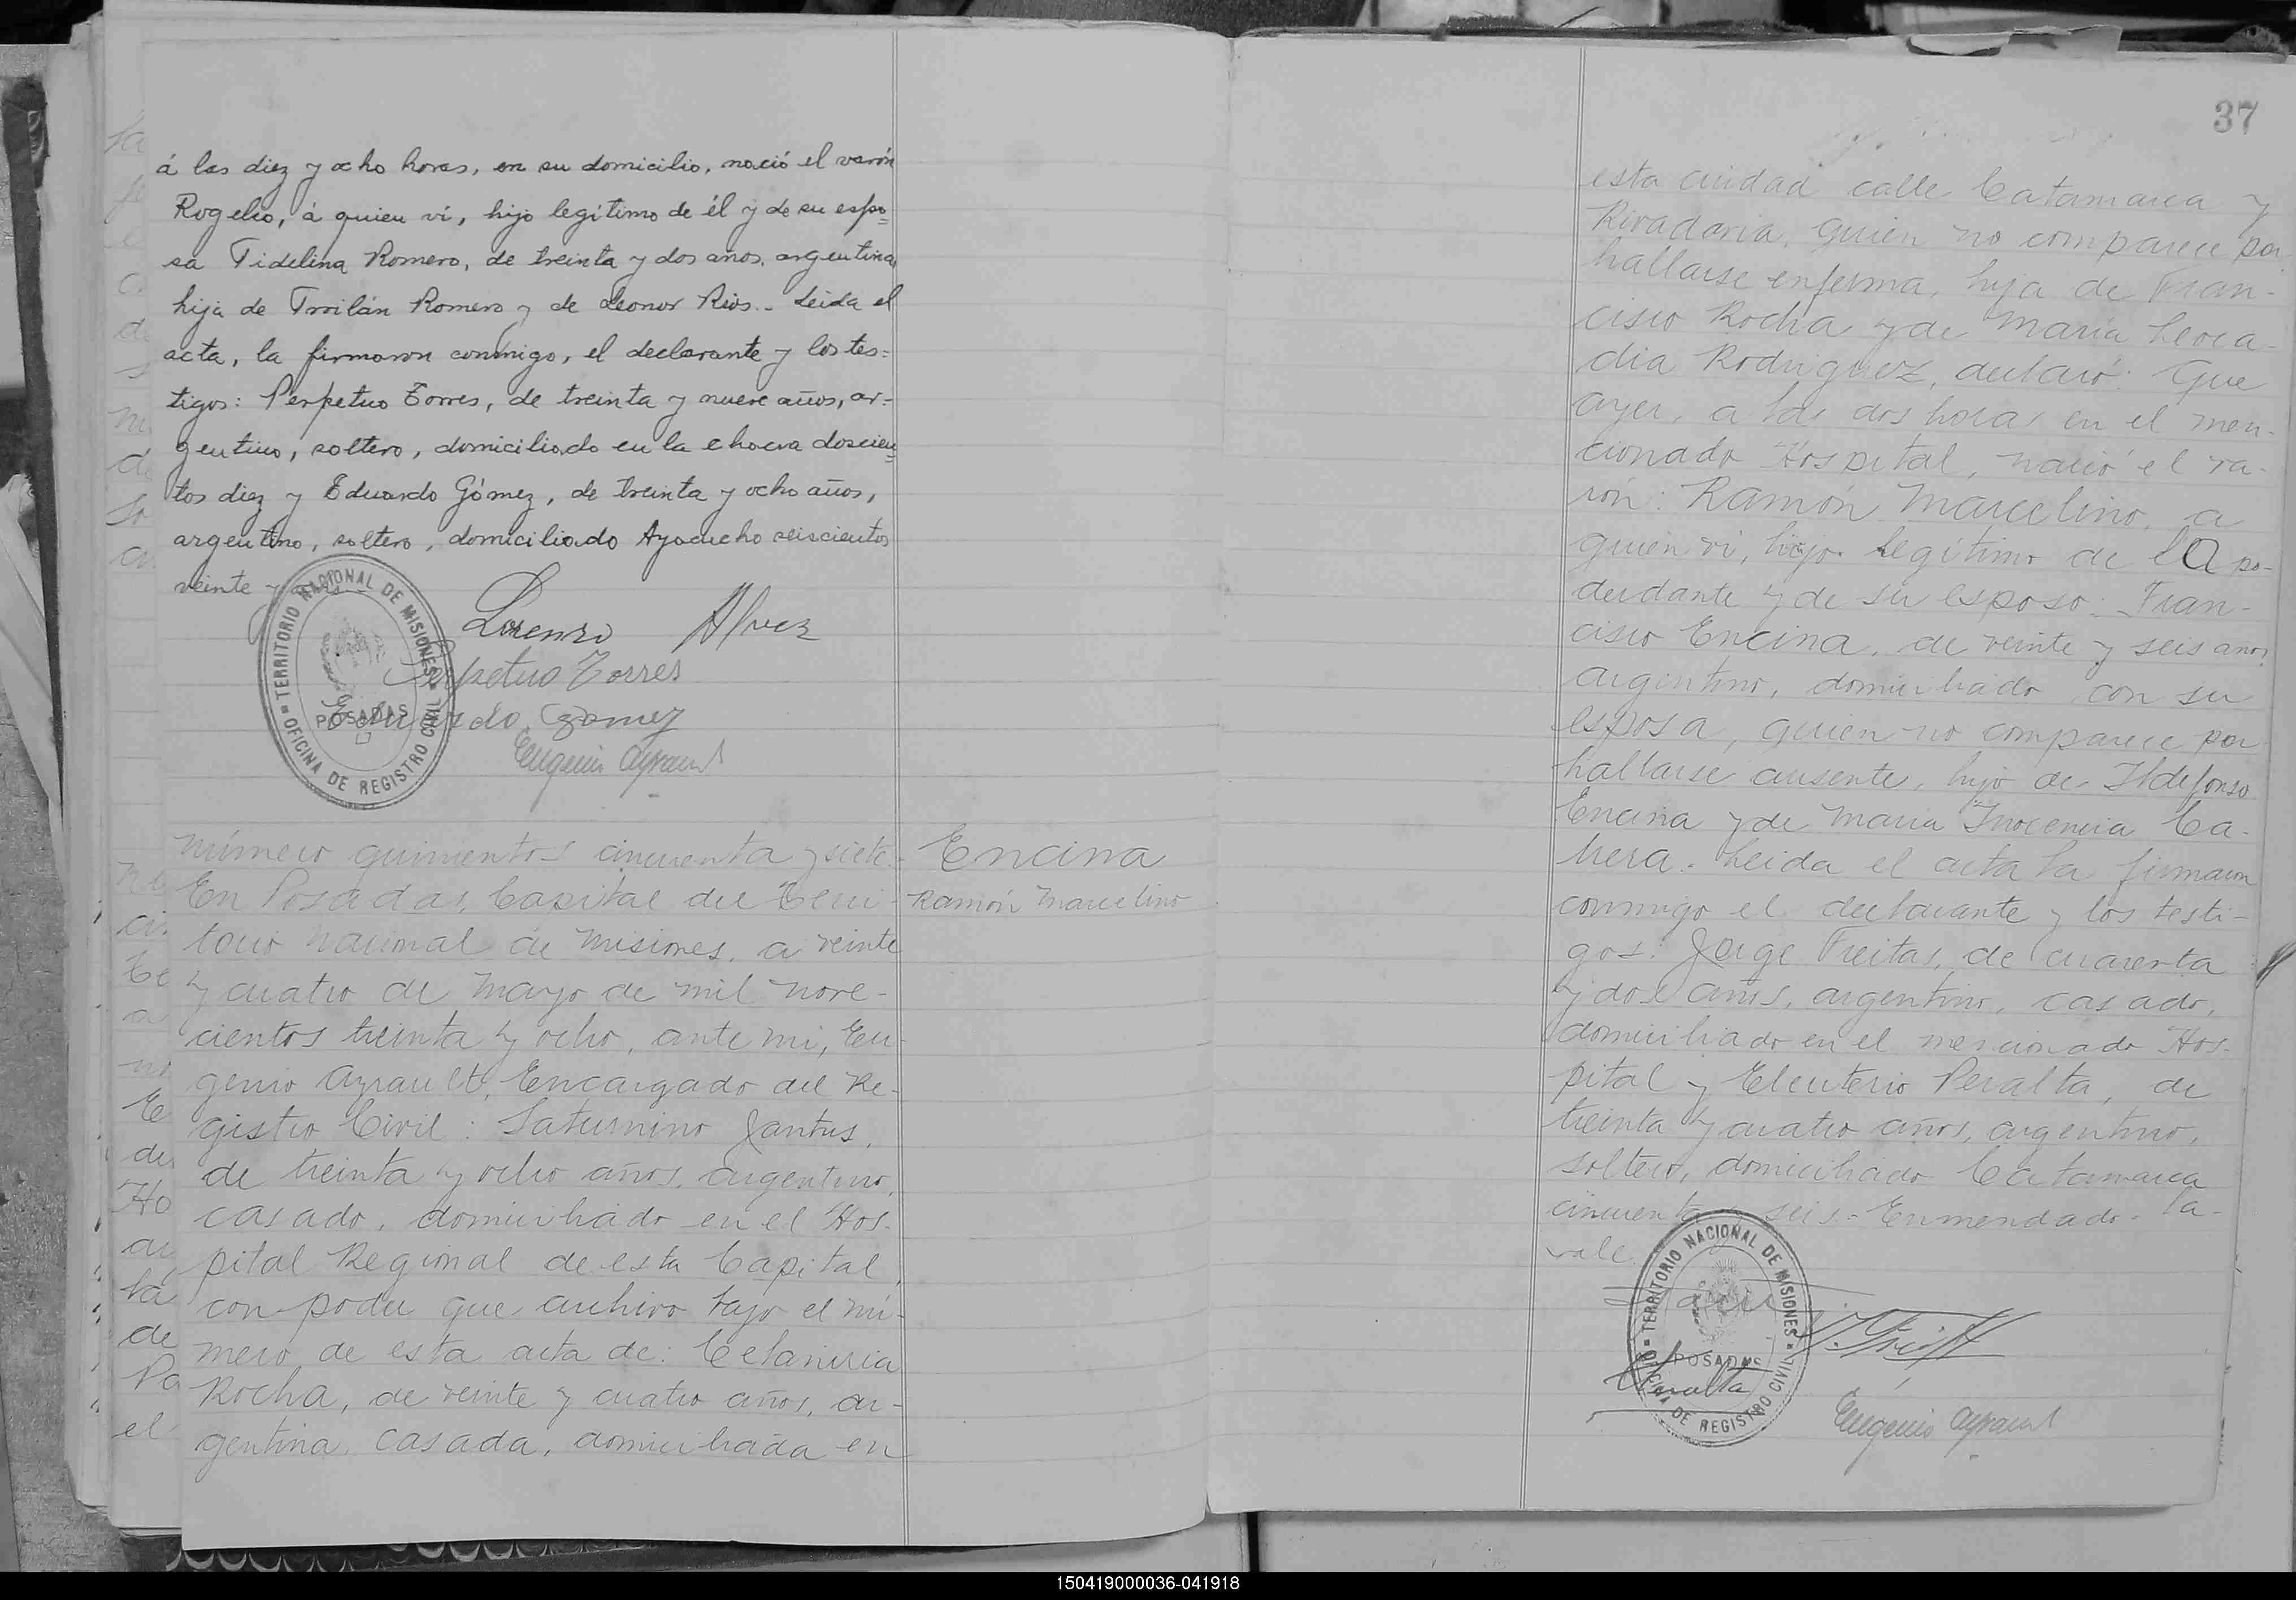 á las diez y ocho horas, en su domicilio, nació el varón
Rogelio, á quien ví, hijo legítimo de él y de su espo=
sa Fidelina Romero, de treinta y dos años, argentina,
hija de Froilán Romero y de Leonor Rios.- Leida el
acta, la firmaron conmigo, el declarante y los tes=
tigos: Perpetuo Torres, de treinta y nueve años, ar=
gentino, soltero, domiciliado en la chacra doscien=
tos diez y Eduardo Gómez, de treinta y ocho años,
argentino, soltero, domiciliado Ayacucho seiscientos
veinte y
Lorenzo Alvez
Perpetuo Torres
Eduardo Gomez
Eugenio Ayrault
TERRITORIO NACIONAL DE MISIONES
POSADAS
OFICINA DE REGISTRO CIVIL
Número quinientos cincuenta y siete.
En Posadas, Capital del Terri-
torio Nacional de Misiones, a veinte
y cuatro de Mayo de mil nove-
cientos treinta y ocho, ante mi, Eu-
genio Ayrault, Encargado del Re-
gistro Civil: Saturnino Jantus,
de treinta y ocho años, argentino,
casado, domiciliado en el Hos-
pital Regional de esta Capital,
con poder que archivo bajo el nú-
mero de esta acta de: Celanina
Rocha, de veinte y cuatro años, ar-
gentina, casada, domiciliada en
Encina
Ramón Marcelino
37
esta ciudad calle Catamarca y
Rivadavia, quien no comparece por
hallarse enferma, hija de Fran-
cisco Rocha y de María Leoca-
dia Rodriguez, declaró: Que
ayer, a las dos horas en el men-
cionado Hospital, nació el va-
rón: Ramón Marcelino, a
quien vi, hijo legítimo de la po-
derdante y de su esposo: Fran-
cisco Encina, de veinte y seis años,
argentino, domiciliado con su
esposa, quien no comparece por
hallarse ausente, hijo de Ildefonso
Encina y de María Inocencia Ca-
brera. Leida el acta la firmaron
conmigo el declarante y los testi-
gos: Jorge Freitas, de cuarenta
y dos años, argentino, casado,
domiciliado en el mencionado Hos-
pital y Eleuterio Peralta, de
treinta y cuatro años, argentino,
soltero, domiciliado Catamarca
cincuenta y seis.- Enmendado- la-
vale.
TERRITORIO NACIONAL DE MISIONES
POSADAS
OFICINA DE REGISTRO CIVIL
Peralta
Eugenio Ayrault
150419000036-041918